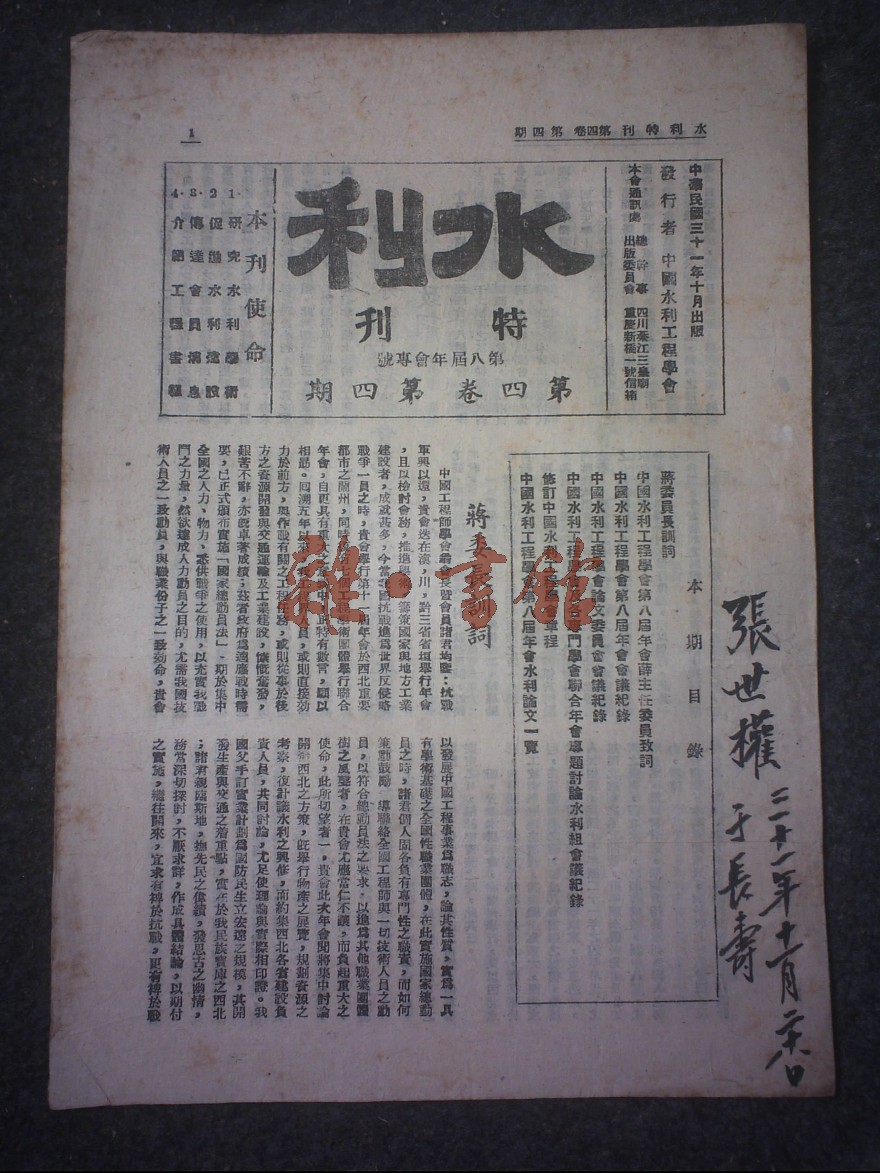 水利特刊 第四卷 第四期
1
中華民國三十一年十月出版
發行者 中國水利工程學會
本會通訊處 總幹事 四川綦江三
出版委員會 重慶新橋一號信箱
水利
特刊
第八屆年會專號
第四卷 第四期
本刊使命
1.研究水利學術
2.促進水利建設
3.傳達會員消息
4.介紹工程書報
本期目錄
蔣委員長訓詞
中國水利工程學會第八屆年會薛主任委員致詞
中國水利工程學會第八屆年會會議紀錄
中國水利工程學會論文委員會會議紀錄
中國水利工程學會及各專門學會聯合年會專題討論水利組會議紀錄
修訂中國水利工程學會章程
中國水利工程學會第八屆年會水利論文一覽
蔣委員長訓詞
中國工程師學會會長暨會員諸君均鑒:抗戰
軍興以還,貴會迭在滇,川,黔三省省垣舉行年會
,且以檢討會務,推進學術,籌策國家與地方工業
建設者,成就甚多,今當我國抗戰進為世界反侵略
戰爭一員之時,貴會舉行第十一屆年會於西北重要
都市之蘭州,同時各工程學術團體舉行聯合
年會,自更具有重大之意義,中正特有數言,願以
相勗。回溯五年以來,我工程界人員,或則直接効
力於前方,與作戰有關之工程任務,或則從事於後
方之資源開發與交通運輸及工業建設,慷慨奮發,
艱苦不辭,亦既卓著成績;茲者政府為適應戰時需
要,已正式頒布實施「國家總動員法」,期於集中
全國之人力、物力、悉供戰爭之使用,以充實我戰
鬥之力量,然欲達成人力動員之目的,尤需我國技
術人員之一致動員,與職業份子之一致効命,貴會
以發展中國工程事業為職志,論其性質,實為一具
有學術基礎之全國性職業團體,在此實施國家總動
員之時,諸君個人固各負有專門性之職責,而如何
策動鼓勵,導聯絡全國工程師與一切技術人員之動
員,以符合總動員法之要求,以進為其他職業團體
樹之風聲者,在貴會尤應當仁不讓,而負起重大之
使命,此所切望者一,貴會此次年會聞將集中討論
開發西北之方策,既舉行物產之展覽,規劃資源之
考察,復計議水利之興修,而約集西北各省建設負
責人員,共同討論,尤足使理論與實際相印證。我
國父手訂實業計劃為國防民生立宏遠之規模,其開
發生產與交通之着重點,實在於我民族寶庫之西北
;諸君親臨斯地,撫先民之偉績,發思古之幽情,
務當深切探討,不厭求詳,作成具體結論,以期付
之實施,繼往開來,宜求有裨於抗戰,更有裨於戰
張世權
三十一年十一月
于長壽
雜·書館